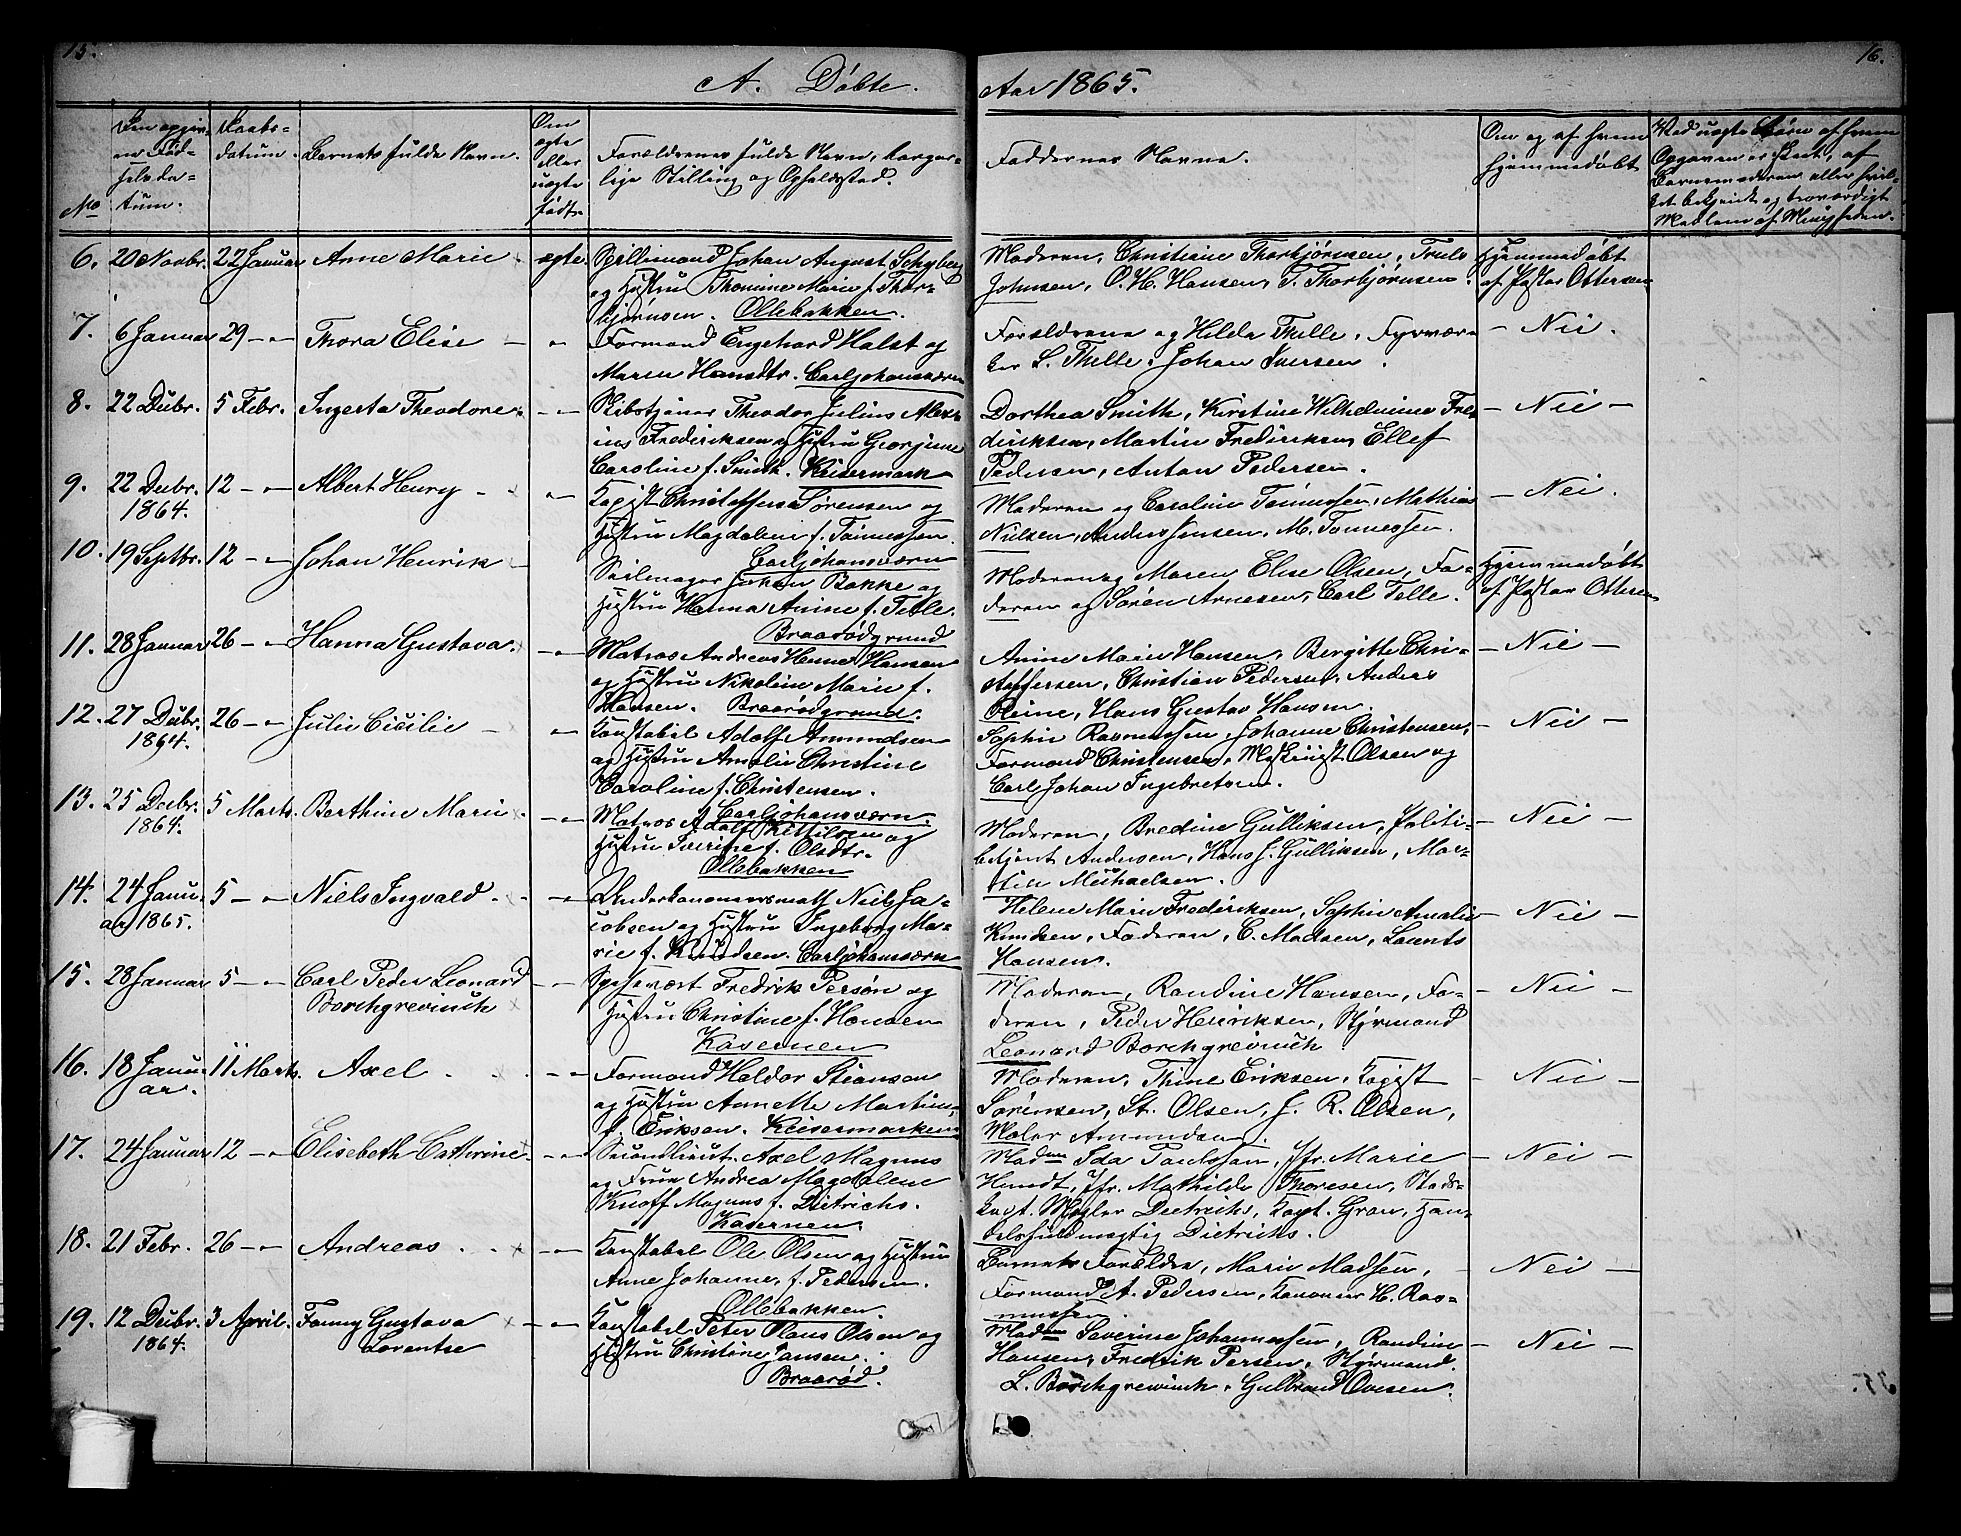 15.
16.
A. Døbte.
Aar 1865.
No
Den opgivne Fødselsdatum.
Daabsdatum.
Barnets fulde Navn.
Om ægte eller uægte født.
Forældrenes fulde Navn, borgerlige Stilling og Opholdssted.
Faddernes Navne.
Om og af hvem hjemmedøbt
Ved uægte Børn af hvem Opgaven er skeet, af
Barnemoderen eller hvilket bekjendt og troværdigt
Medlem af Menigheden.
6. 20 Novbr. 22 Januar Anne Marie ægte Johan August Schyberg
og Hustru Thomine Marie f. Thorbjørnsen. Ollebakken.
Moderen, Christine Thorbjørnsen, Truls
Johnsen, O. H. Hansen, T. Thorbjørnsen.
Hjemmedøbt
af Pastor Ottersen
7. 6 Januar 29 - " Thora Elise - " Formand Engehard Holst og
Maren Hansdtr. Carljohansværn
Forældrene og Hilda Thelle, Fyrværker L. Thelle, Johan Iversen.
- Nei.
8. 22 Debr. 5 Febr. Ingerta Theodore - " Skibstjener Theodor Julius Alexius Frederiksen og Hustru Georgine
Caroline f. Smith. Keisermark
Dorthea Smith, Kirstine Wilhelmine Frederiksen, Martin Frederiksen, Ellef
Pedersen, Anton Pedersen.
- Nei -
9. 22 Debr. 1864. 12 - " Albert Henry - " Christoffer Sørensen og
Hustru Magdalene f. Tønnessen.
Carljohansværn
Moderen og Caroline Tønnessen, Mathias
Nielsen, Anders Jensen, M. Tønnessen.
- Nei.
10. 19 Septbr. 12 - " Johan Henrik - Seilmager Johan Bakke og
Hustru Hanna Anine f. Telle.
Braarødgrund
Moderen og Maren Elise Olsen, Faderen og Søren Arnesen, Carl Telle.
Hjemmedøbt
af Pastor Ottersen
11. 28 Januar 26 - " Hanna Gustava. - " Matros Andreas Hansen
og Hustru Nikoline Marie f.
Hansen. Braarødgrund.
Anine Marie Hansen, Bergitte Christoffersen, Christian Pedersen, Anders
Reine, Hans Gustav Hansen.
- Nei -
12. 27 Debr. 1864. 26 - " Julie Cicilie - " Konstabel Adolf Amundsen
og Hustru Amalie Christine
Caroline f. Christensen.
Carljohansværn.
Sophie Rasmussen, Johanne Christensen,
Formand Christensen, Maskinist Olsen og
Carl Johan Ingebretsen.
- Nei -
13. 25 Debr. 1864. 5 Marts. Berthine Marie - " Matros Adolf Kittilsen og
Hustru Severine f. Olsdtr.
Ollebakken
Moderen, Bredine Gulliksen, Politibetjent Andersen, Hans J. Gulliksen, Mathilde Michaelsen.
- Nei -
14. 24 Januar 1865. 5 - " Niels Ingvald. - " Underkanonersmath Niels Jacobsen og Hustru Ingeborg Marie f. Knudsen. Carljohansværn
Helene Marie Frederiksen, Sophie Amalie
Knudsen, Faderen, C. Madsen, Launts
Hansen.
- Nei -
15. 28 Januar 5 - " Carl Peder Leonard
Borchgrevinck - " Spisevært Fredrik Persøn og
Hustru Christine f. Hansen
Kasernen
Moderen, Randine Hansen, Faderen, Peder Henriksen, Styrmand
Leonard Borchgrevinck.
- Nei -
16. 18 Januar. 11 Marts. Axel - " Formand Haldor Steansen
og Hustru Annette Martine
f. Eriksen. Keisermarken
Moderen, Thine Eriksen,
Sørensen, St. Olsen, J. R. Olsen,
Maler Amundsen.
- Nei -
17. 24 Januar 12 - " Elisebeth Cathrine - " Secondlieut. Axel Magnus
og Frue Andrea Magdalene
Knoff Magnus f. Dietrichs.
Kasernen.
Madme Ida Paulssen, Jfr. Marie
Hundt, Jfr. Mathilde Thoresen, Mægler Dietrichs, Kapt. Gran, Handelsfuldmægtig Dietrichs.
- Nei -
18. 21 Febr. 26 - " Andreas. - " Konstabel Ole Olsen og Hustru
Anne Johanne, f. Pedersen.
Ollebakken
Barnets Forældre, Marie Madsen,
Formand A. Pedersen, Kanoner H. Rasmussen.
- Nei -
19. 12 Debr. 1864. 3 April. Fanny Gustava
Lorentse - " Konstabel Peter Olaus Olsen og
Hustru Christine Jansen.
Braarød.
Madme Saverine Johannessen, Randine
Hansen, Fredrik Persen, Styrmand
L. Borchgrevinck, Gulbrand Ovesen.
- Nei -